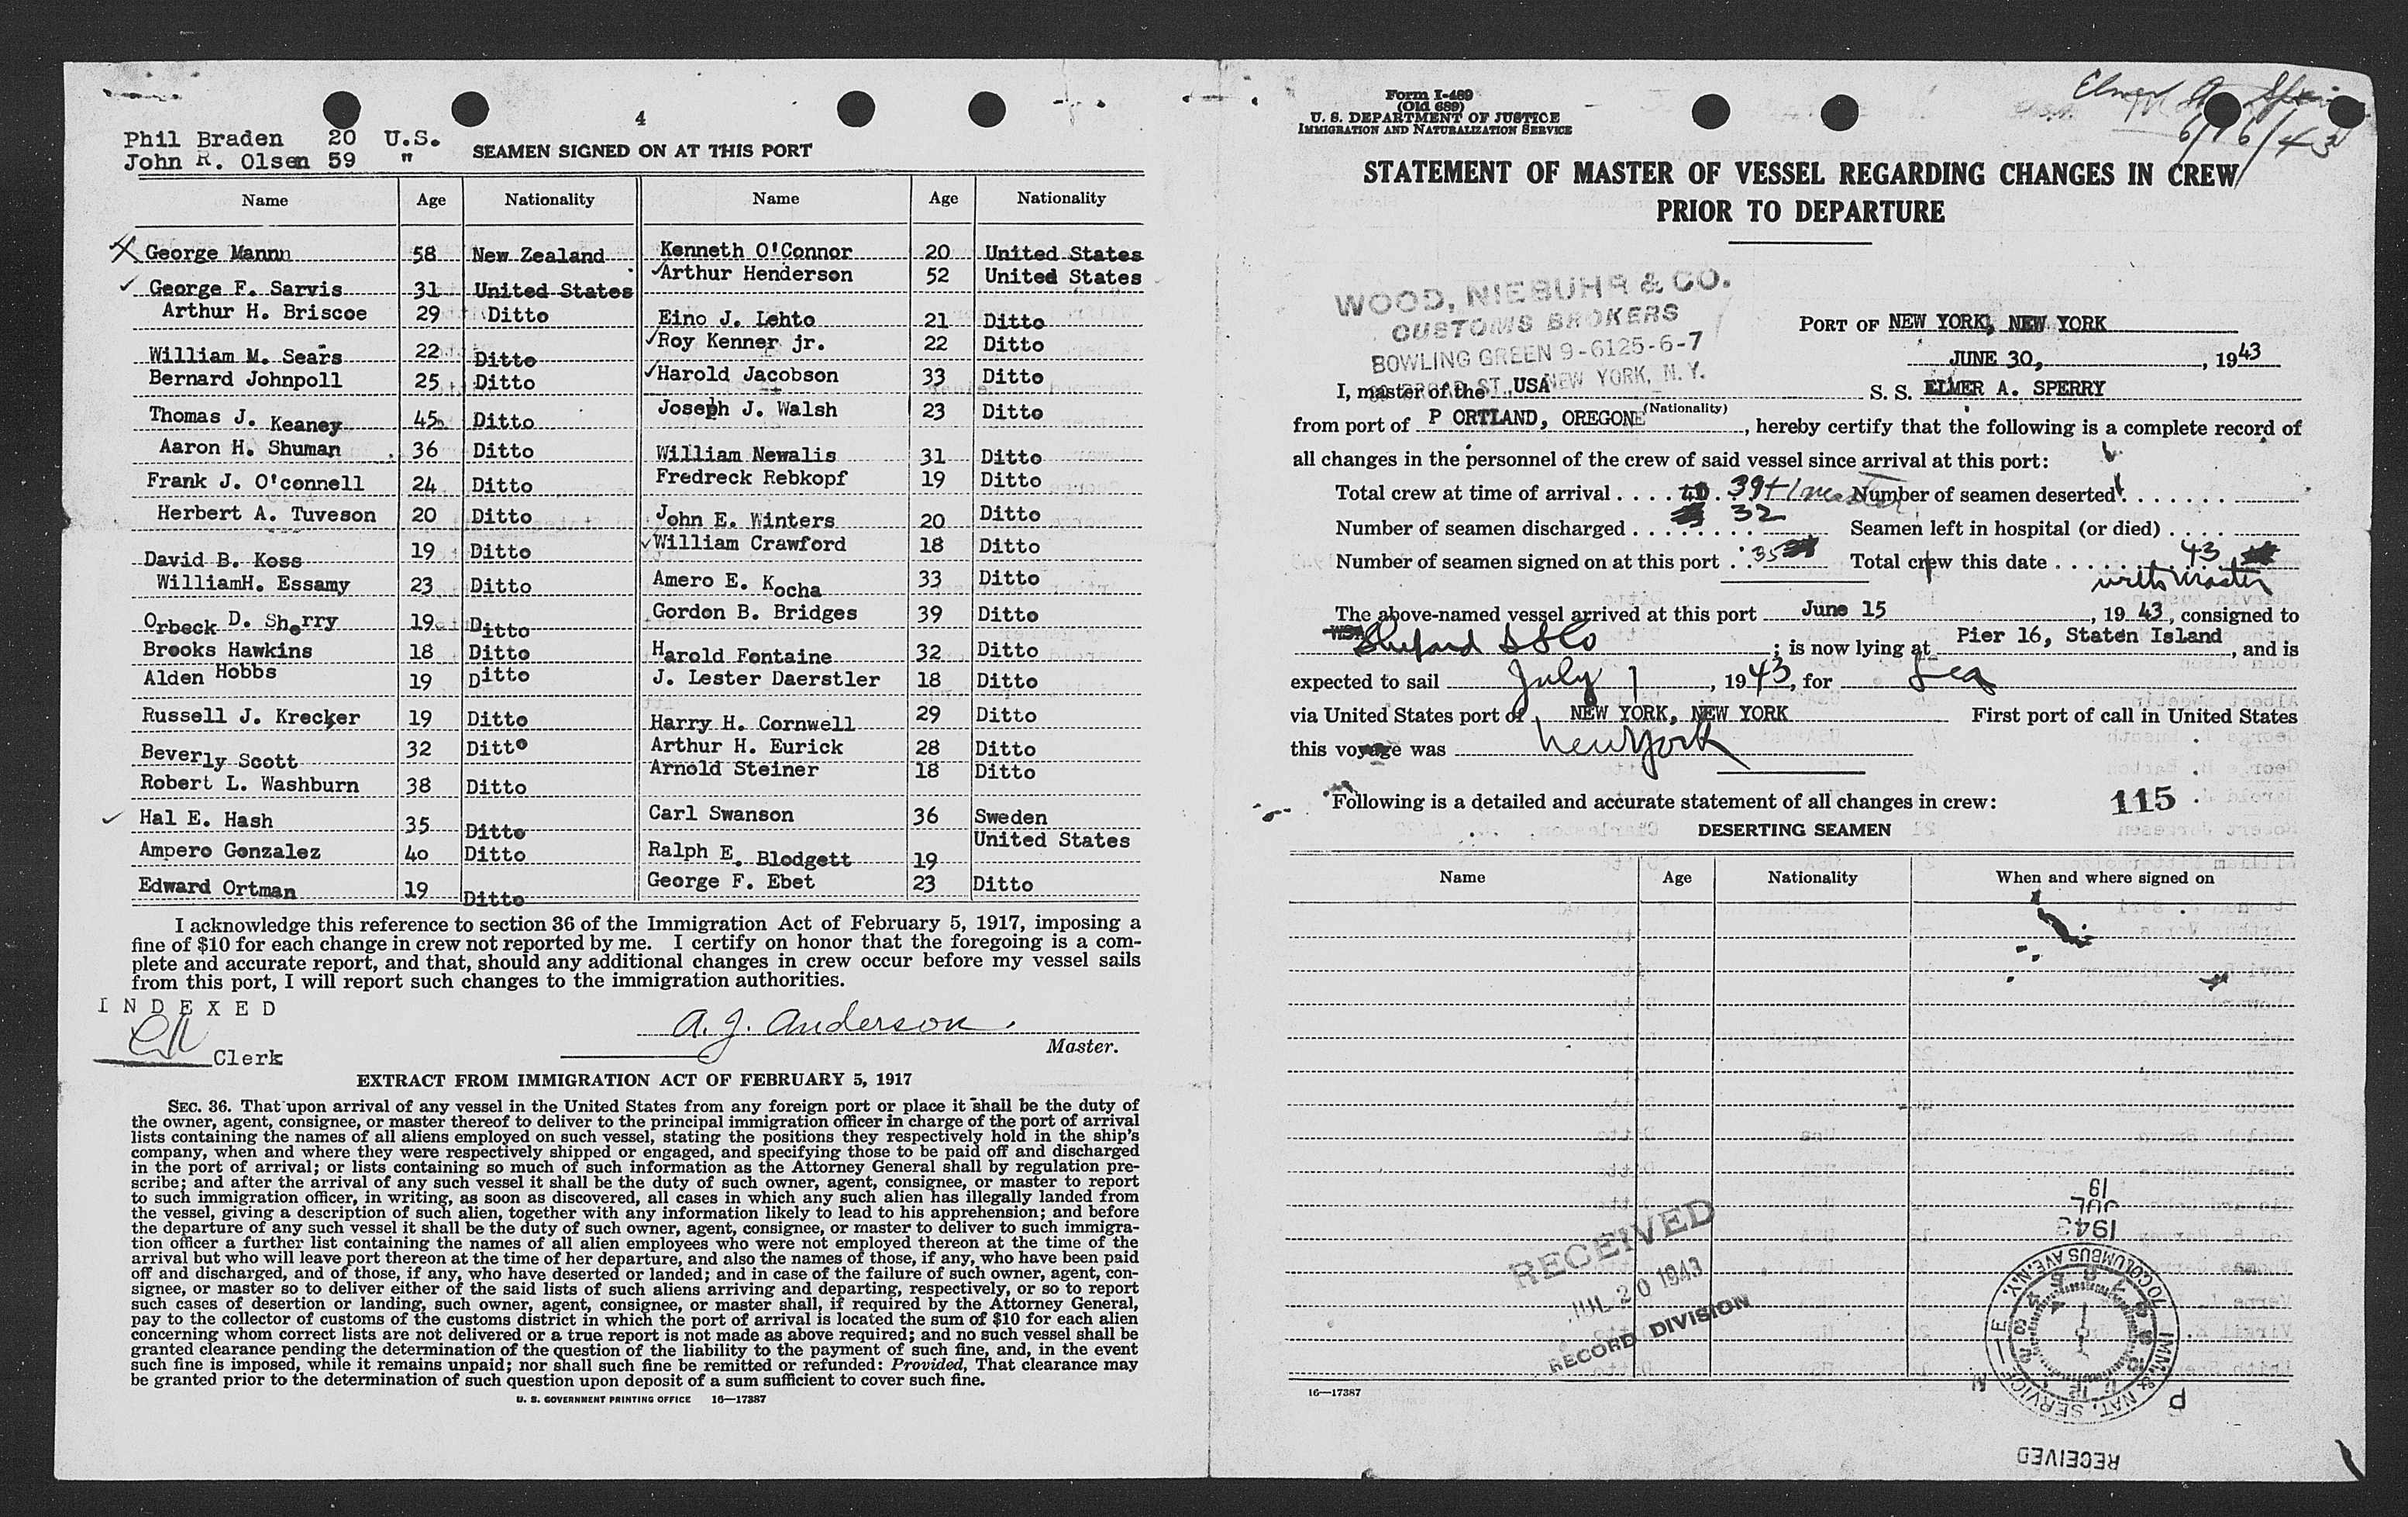 4
Phil Braden 20 U.S.
John R. Olsen 59 "
SEAMEN SIGNED ON AT THIS PORT
Name Age Nationality Name Age Nationality
George Mannn 58 New Zealand Kenneth O'Connor 20 United States
✓Arthur Henderson 52 United States
✓ George F. Sarvis 31 United States
Arthur H. Briscoe 29 Ditto Eino J. Lehto 21 Ditto
William M. Sears 22 Ditto ✓Roy Kenner jr. 22 Ditto
Bernard Johnpoll 25 Ditto ✓Harold Jacobson 33 Ditto
Thomas J. Keaney 45 Ditto Joseph J. Walsh 23 Ditto
Aaron H. Shuman 36 Ditto William Newalis 31 Ditto
Frank J. O'connell 24 Ditto Fredreck Rebkopf 19 Ditto
Herbert A. Tuveson 20 Ditto John E. Winters 20 Ditto
David B. Koss 19 Ditto ✓William Crawford 18 Ditto
WilliamH. Essamy 23 Ditto Amero E. Kocha 33 Ditto
Orbeck D. Sherry 19 Ditto Gordon B. Bridges 39 Ditto
Brooks Hawkins 18 Ditto Harold Fontaine 32 Ditto
Alden Hobbs 19 Ditto J. Lester Daerstler 18 Ditto
Russell J. Krecker 19 Ditto Harry H. Cornwell 29 Ditto
Beverly Scott 32 Ditto Arthur H. Eurick 28 Ditto
Robert L. Washburn 38 Ditto Arnold Steiner 18 Ditto
✓ Hal E. Hash 35 Ditto Carl Swanson 36 Sweden
Ampero Gonzalez 40 Ditto Ralph E. Blodgett 19 United States
Edward Ortman 19 Ditto George F. Ebet 23 Ditto
I acknowledge this reference to section 36 of the Immigration Act of February 5, 1917, imposing a
fine of $10 for each change in crew not reported by me. I certify on honor that the foregoing is a com-
plete and accurate report, and that, should any additional changes in crew occur before my vessel sails
from this port, I will report such changes to the immigration authorities.
INDEXED
Clerk
A. J. Anderson.
Master.
EXTRACT FROM IMMIGRATION ACT OF FEBRUARY 5, 1917
SEC. 36. That upon arrival of any vessel in the United States from any foreign port or place it shall be the duty of
the owner, agent, consignee, or master thereof to deliver to the principal immigration officer in charge of the port of arrival
lists containing the names of all aliens employed on such vessel, stating the positions they respectively hold in the ship's
company, when and where they were respectively shipped or engaged, and specifying those to be paid off and discharged
in the port of arrival; or lists containing so much of such information as the Attorney General shall by regulation pre-
scribe; and after the arrival of any such vessel it shall be the duty of such owner, agent, consignee, or master to report
to such immigration officer, in writing, as soon as discovered, all cases in which any such alien has illegally landed from
the vessel, giving a description of such alien, together with any information likely to lead to his apprehension; and before
the departure of any such vessel it shall be the duty of such owner, agent, consignee, or master to deliver to such immigra-
tion officer a further list containing the names of all alien employees who were not employed thereon at the time of the
arrival but who will leave port thereon at the time of her departure, and also the names of those, if any, who have been paid
off and discharged, and of those, if any, who have deserted or landed; and in case of the failure of such owner, agent, con-
signee, or master so to deliver either of the said lists of such aliens arriving and departing, respectively, or so to report
such cases of desertion or landing, such owner, agent, consignee, or master shall, if required by the Attorney General,
pay to the collector of customs of the customs district in which the port of arrival is located the sum of $10 for each alien
concerning whom correct lists are not delivered or a true report is not made as above required; and no such vessel shall be
granted clearance pending the determination of the question of the liability to the payment of such fine, and, in the event
such fine is imposed, while it remains unpaid; nor shall such fine be remitted or refunded: Provided, That clearance may
be granted prior to the determination of such question upon deposit of a sum sufficient to cover such fine.
U. S. GOVERNMENT PRINTING OFFICE 16—17387
Form I-489
(Old 689)
U. S. DEPARTMENT OF JUSTICE
IMMIGRATION AND NATURALIZATION SERVICE
Elmer A.
6/16/43
STATEMENT OF MASTER OF VESSEL REGARDING CHANGES IN CREW
PRIOR TO DEPARTURE
WOOD, NIEBUHR & CO.
CUSTOMS BROKERS
BOWLING GREEN 9-6125-6-7
BROAD ST. NEW YORK, N. Y.
PORT OF NEW YORK, NEW YORK
JUNE 30, , 1943
I, master of the USA S. S. ELMER A. SPERRY
(Nationality)
from port of P ORTLAND, OREGON , hereby certify that the following is a complete record of
all changes in the personnel of the crew of said vessel since arrival at this port:
Total crew at time of arrival . . . . 40 39+1 master Number of seamen deserted . . . . . .
Number of seamen discharged . . . . . . . . 32 Seamen left in hospital (or died) . . . .
Number of seamen signed on at this port . . 35 Total crew this date . . . . . . . . 43
with master
The above-named vessel arrived at this port June 15 , 1943, consigned to
WSA Shepard SS Co ; is now lying at Pier 16, Staten Island , and is
expected to sail July 1 , 1943, for Sea
via United States port of NEW YORK, NEW YORK First port of call in United States
this voyage was New York
Following is a detailed and accurate statement of all changes in crew: 115
DESERTING SEAMEN
Name Age Nationality When and where signed on
RECEIVED
JUL 20 1943
RECORD DIVISION
JUL 19
1943
70 COLUMBUS AVE. N.Y.
IMM. & NAT. SERVICE
RECEIVED
16—17387